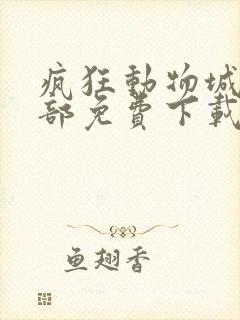 疯狂動物城
部免費下載
鱼翅香